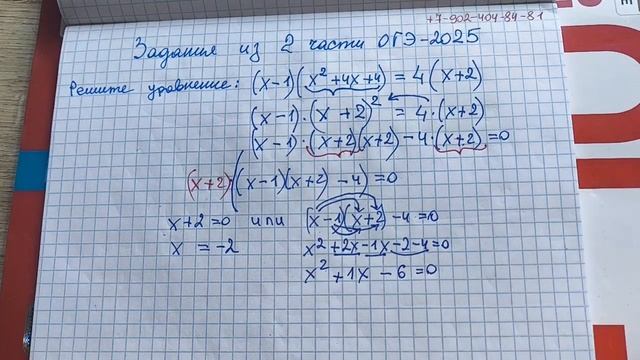 +7-902-404-84-81
Задания из 2 части ОГЭ-2025
Решите уравнение: (x-1)(x²+4x+4) = 4(x+2)
(x-1)·(x+2)² = 4·(x+2)
(x-1)·(x+2)(x+2)-4·(x+2)=0
(x+2)·((x-1)(x+2)-4)=0
x+2=0 или (x-1)(x+2)-4=0
x = -2 x²+2x-1x-2-4=0
x²+1x-6=0